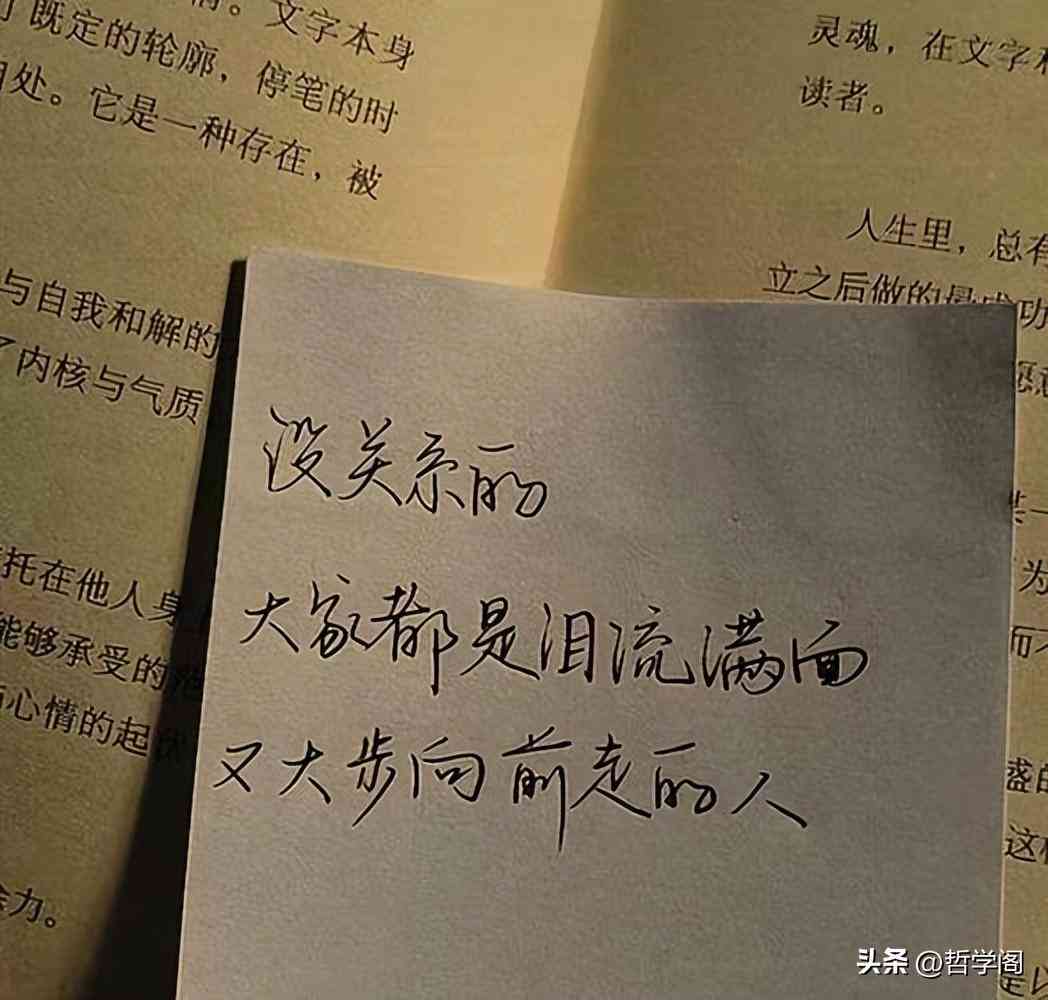 文字本身
既定的轮廓，停笔的时
处。它是一种存在，被
与自我和解的
内核与气质
托在他人身
能够承受的
心情的起伏
力。
灵魂，在文字
读者。
人生里，总有
立之后做的最成功
愿意
某一
为
而不
盛的
这
没关系的
大家都是泪流满面
又大步向前走的人
头条 @哲学阁